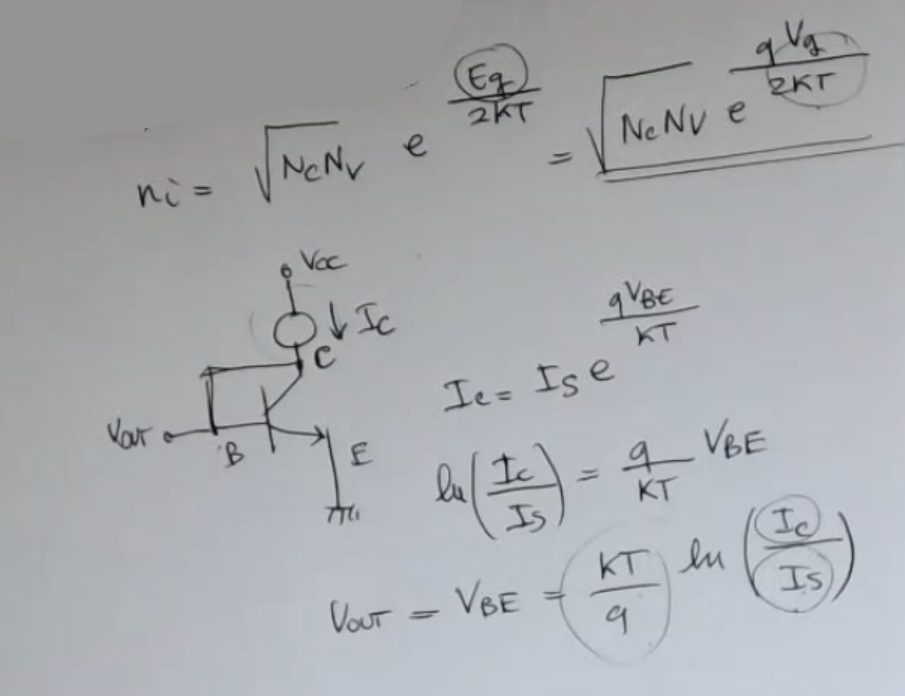 ni = √NcNv e^(Eg/2KT) = √(NcNv e^(qVg/2KT))
Vcc
↓ Ic
C
Vout
B
E
Ic = Is e^(qVBE/KT)
ln(Ic/Is) = q/KT VBE
Vout = VBE = KT/q ln(Ic/Is)